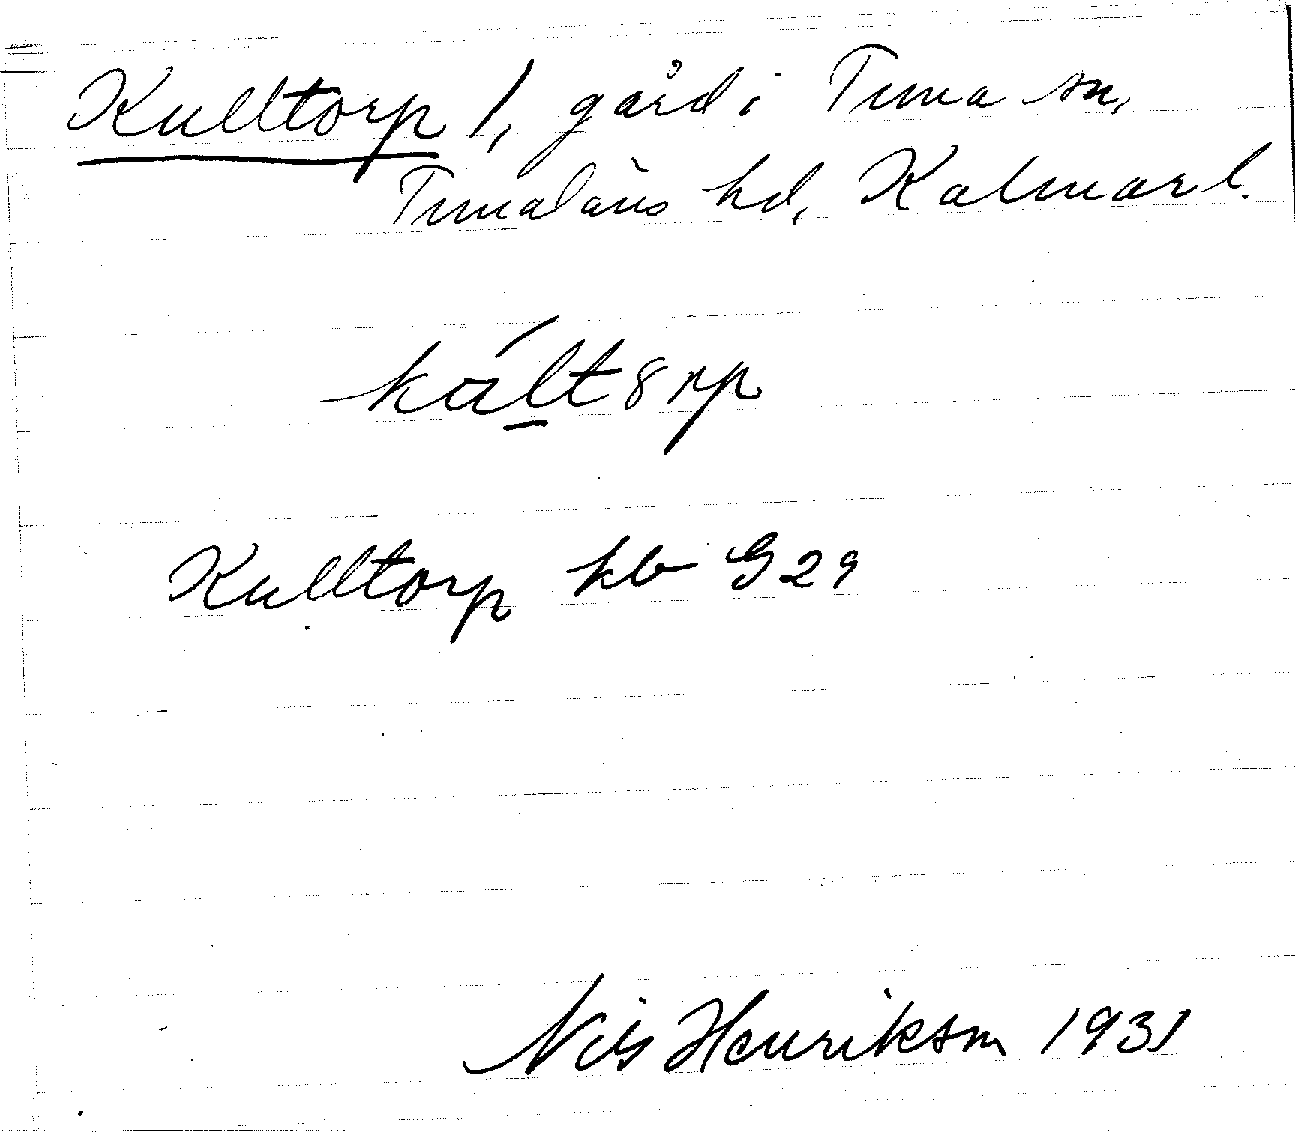 Kulltorp 1, gård i Tuna sn,
Tunaläns hd, Kalmar l.
kált8rp
Kulltorp kb G29
Nils Henrikson 1931